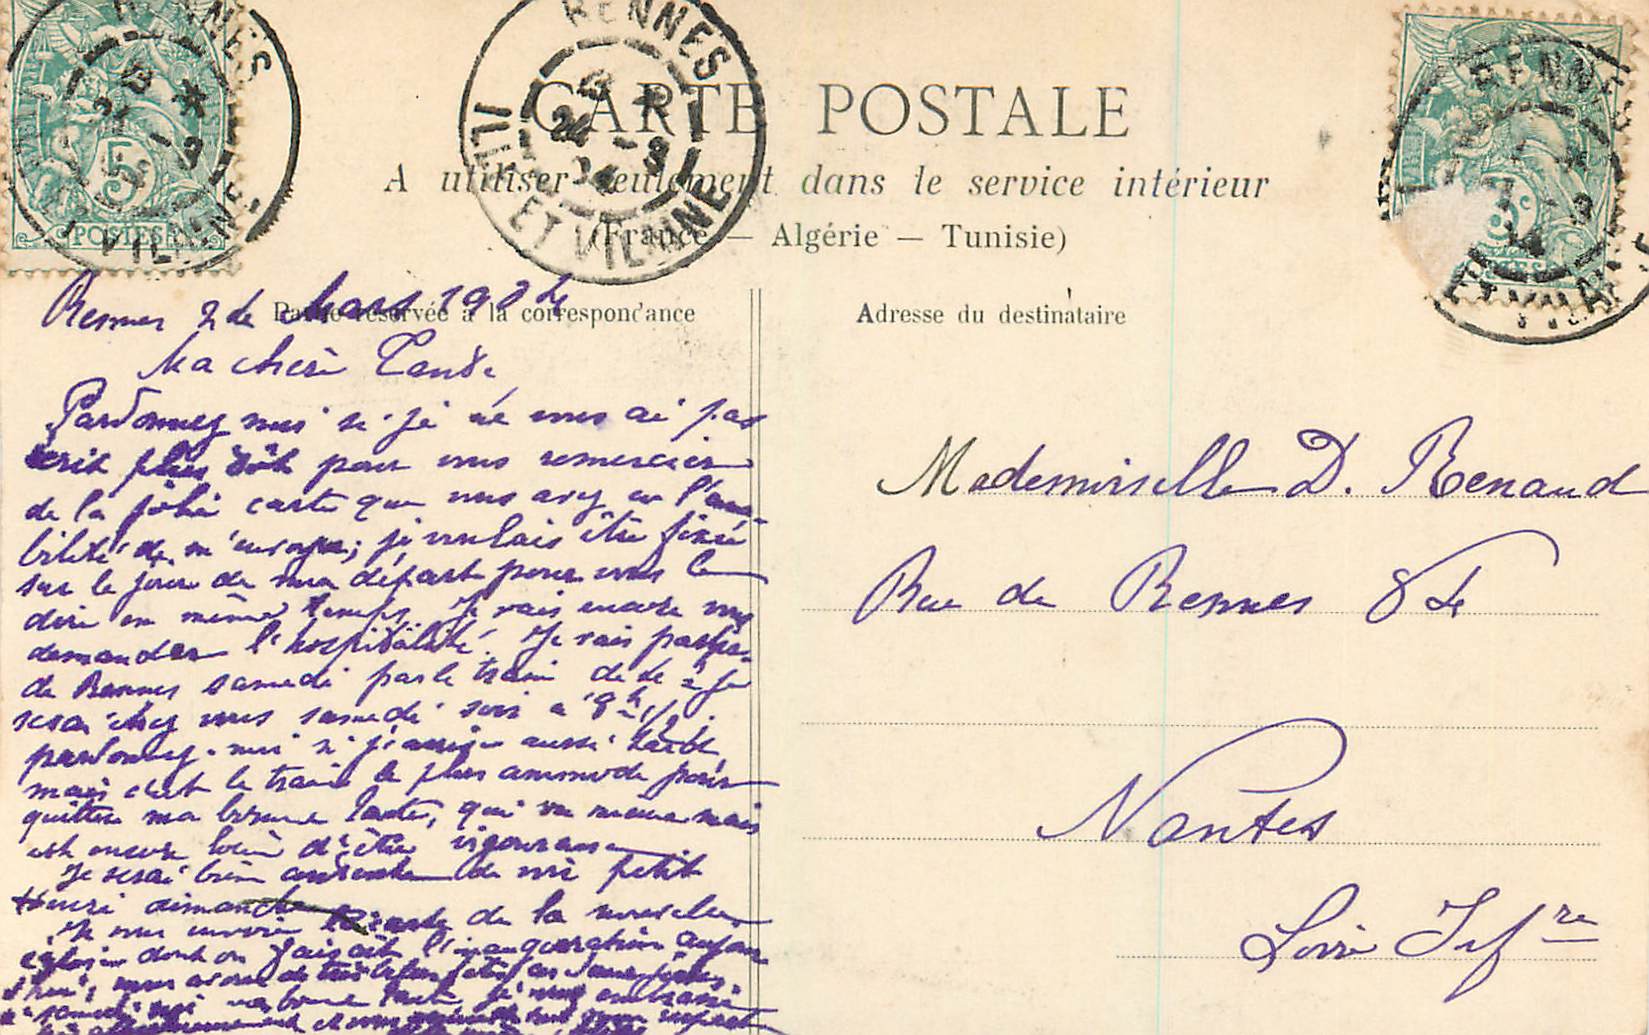 RENNES
ILLE ET VILAINE
24 -3
04
5
POSTES
CARTE POSTALE
A utiliser seulement dans le service intérieur
(France — Algérie — Tunisie)
Partie réservée à la correspondance
Adresse du destinataire
Rennes 24 Mars 1904
Ma chère Tante
Pardonnez moi si je ne vous ai pas
écrit plus tôt pour vous remercier
de la jolie carte que vous avez eu l'ama-
bilité de m'envoyer; je voulais être fixée
sur le jour de mon départ pour vous le
dire en même temps. Je vais encore vous
demander l'hospitalité. Je vais partir
de Rennes samedi par le train de je
serai chez vous samedi soir à 9h 1/2.
pardonnez-moi si j'arrive aussi tard,
mais c'est le train le plus commode pour
quitter ma bonne tante, qui va mieux mais
est encore loin d'être vigoureuse
Je serai bien contente de voir petit
Henri dimanche
Je vous envoie la carte de la nouvelle
église dont on faisait l'inauguration aujour
d'hui, nous avons de très belles fêtes
à samedi ma bonne tante je vous embrasse
Mademoiselle D. Renaud
Rue de Rennes 84
Nantes
Loire Infre